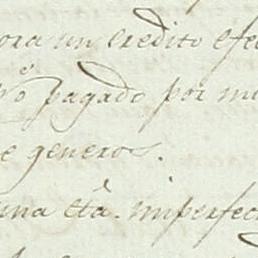 ora un credito efe
pagado por m
e generos.
una ctâ. imperfec